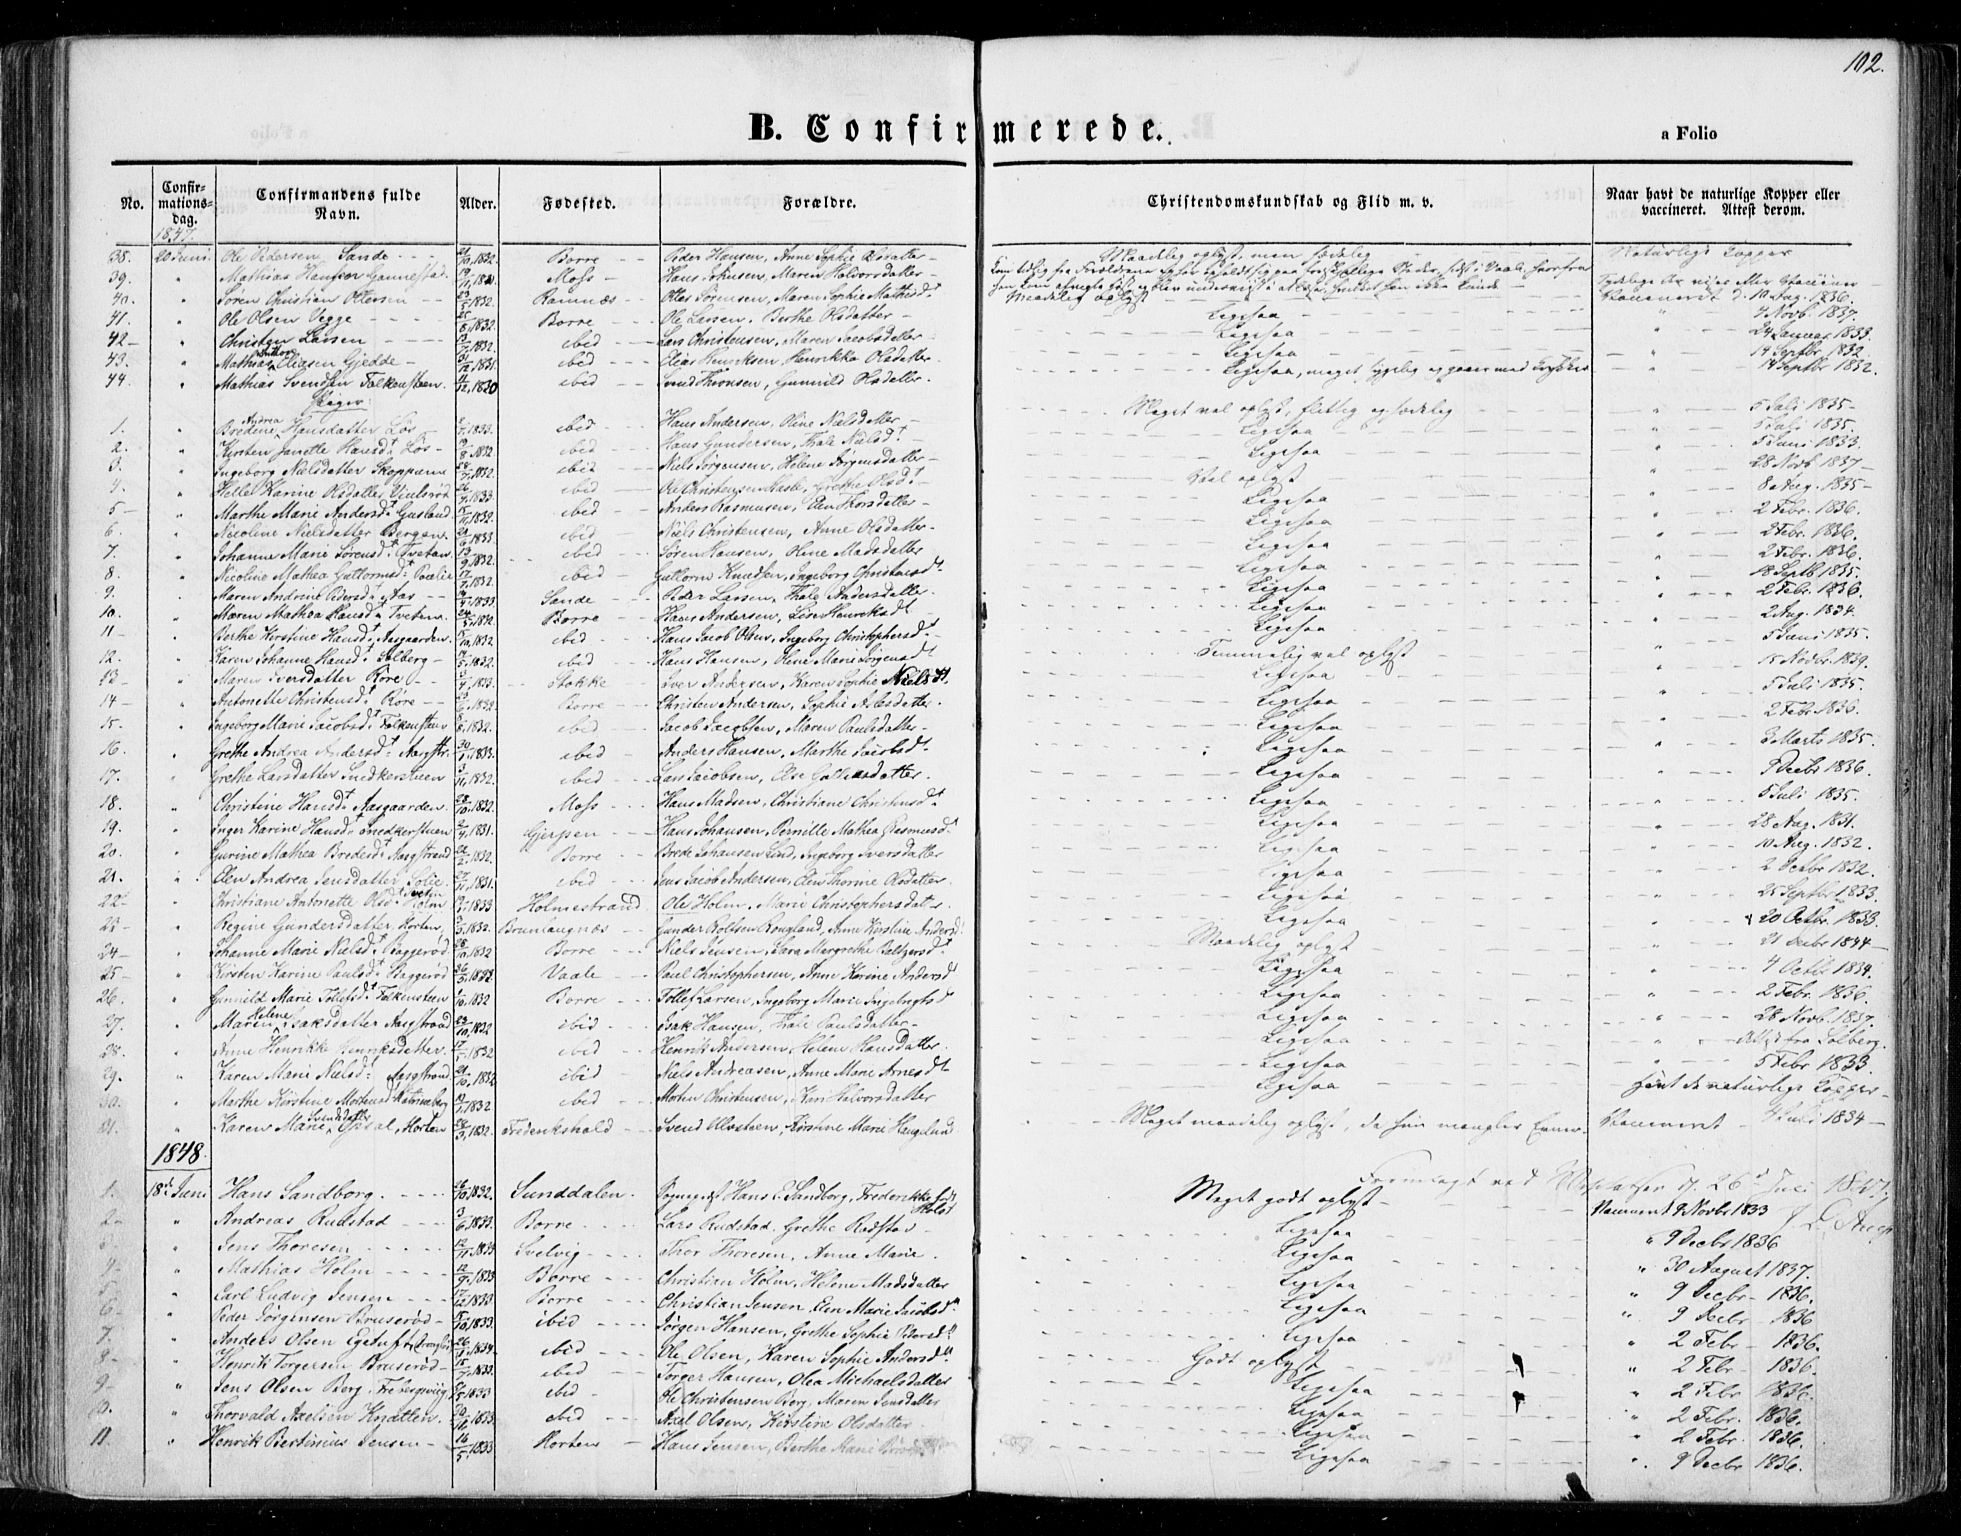 102.
B. Confirmerede.
a Folio
No. Confirmationsdag. Confirmandens fulde Navn. Alder. Fødested. Forældre. Christendomskundskab og Flid m. v. Naar havt de naturlige Kopper eller vaccineret. Attest derom.
1847.
38. 20 Juni Ole Pedersen Sande 1832. Borre Peder Hansen, Anne Sophie Olsdatter Maadelig oplyst, men sædelig Naturlige Kopper
39. " Mathias Hansen Moss Hans Johnsen, Maren Halvorsdatter
40. " Søren Christian Ottersen 1832. Ramnæs Otter Sørensen, Maren Sophie Mathisdt Maadelig oplyst Vaccineret d. 10 Aug. 1836.
41. " Ole Olsen Vegge 1832. Borre Ole Larsen, Berthe Olsdatter Ligesaa " 4 Novb. 1837.
42 " Christen Larsen 1832. ibid Lars Christensen, Maren Jacobsdatter Ligesaa " 24 Januar 1833.
43. " Mathias Eliasen Gjedde 1831. ibid Elias Henriksen, Henrikke Olsdatter Ligesaa " 14 Septbr 1832
44. " Mathias Svendsen Falkensteen 1830 ibid Svend Thronsen, Gunnild Olsdatter Ligesaa, meget " 14 Septbr 1832.
Piger:
1. " Bredine Andrea Hansdatter Lør 1833. ibid Hans Andersen, Oline Nielsdatter Meget vel oplyst, flittig og sædelig " 5 Juli 1835
2. " Kirsten Janette Hansdt Lør 1832. ibid Hans Gundersen, Thale Nielsdt Ligesaa " 5 Juli 1835.
3. " Ingeborg Nielsdatter Skoppum 1832. ibid Niels Jørgensen, Helene Jørgensdatter Ligesaa " 5 Juni 1833.
4. " Helle Karine Olsdatter 1833 ibid Ole Christensen, Grethe Olsdt Vel oplyst " 28 Novb 1837
5 " Marthe Marie Andersdt 1832. ibid Anders Rasmusen, Elen Thorsdatter Ligesaa " 8 Aug. 1835
6. " Nicoline Nielsdatter Bergan 1833 ibid Niels Christensen, Anne Olsdatter Ligesaa " 2 Febr. 1836.
7. " Johanne Marie Sørensdt Tveten 1832. ibid Søren Hansen, Oline Madsdatter Ligesaa " 2 Febr. 1836.
8. " Nicoline Mathea Guttormsdt 1832. ibid Guttorm Knudsen, Ingeborg Christensdt Ligesaa " 2 Febr. 1836.
9. " Maren Andrine Pedersdt Aas 1833. Sande Peder Larsen, Thale Andersdatter Ligesaa " 18 Septb 1835.
10. " Maren Mathea Hansdt Tveten 1832. Borre Hans Andersen, Lise Henriksdt Ligesaa " 2 Febr. 1836.
11 " Berthe Kirstine Hansdt Aasgaarden 1832. ibid Hans Jacob Olsen, Ingeborg Christophersdt Ligesaa " 2 Aug. 1834.
12. " Karen Johanne Hansdt Solberg 1832. ibid Hans Hansen, Oline Marie Jørgensdt Temmelig vel oplyst " 5 Juni 1835.
13 " Maren Iversdatter Røre Stokke Iver Andersen, Karen Sophie Nielsdt. Ligesaa " 15 Novbr. 1839.
14 " Antonette Christensdt Røre 1832 Borre Christen Andersen, Sophie Ligesaa " 5 Juli 1835.
15. " Ingeborg Marie Jacobsdt Falkensteen 1832. ibid Jacob Jacobsen, Maren Paulsdatter Ligesaa " 2 Febr 1836.
16. " Grethe Andrea Andersdt Aasgstr. 1833. ibid Anders Hansen, Marthe Jacobsdt Ligesaa " 3 Marts 1835.
17. " Grethe Larsdatter Snedkerstuen 1832. ibid Lars Jacobsen, Else Ligesaa " 9 Decbr 1836.
18. " Christine Hansdt Aasgaarden 1832. Moss Hans Madsen, Christiane Christensdt Ligesaa " 5 Juli 1835.
19. " Inger Karine Hansdt Snedkerstuen 1831. Gjerpen Hans Johansen, Pernille Mathea Rasmusdt Ligesaa " 28 Aug. 1831.
20. " Gurine Mathea Bredesdt Aasgstrand 1832. Borre Brede Johansen Lind, Ingeborg Iversdatter Ligesaa " 10 Aug. 1832.
21. " Elen Andrea Jensdatter Solie. 1831. ibid Jens Jacob Andersen, Elen Thorine Olsdatter Ligesaa " 2 Octbr 1832.
22 " Christiane Antonette Olsdt Holm 1833 Holmestrand Ole Holm, Marie Christophersdatter Ligesaa " 25 Septbr 1833.
23 " Regine Gundersdatter Horten 1832. Brunlaugnæs Gunder Rolfsen Rougland, Anne Kirstine Andersdt Ligesaa 20 Octbr. 1833.
24 " Johanne Marie Nielsdt Baggerød 1832 Borre Niels Jensen, Sara Margrethe Baltzersdt Maadelig oplyst " 21 Decbr 1844
25 " Kirsten Karine Paulsdt Baggerød Vaale Paul Christophersen, Anne Karine Andersdt Ligesaa " 4 Octb 1834.
26. " Gunnild Marie Tollefsdt Falkensteen 1832 Borre Tollef Larsen, Ingeborg Marie Ingebregtsdt Ligesaa " 2 Febr. 1836.
27. " Maren Helene Isaksdatter Aasgstrand 1832 ibid Isak Hansen, Thale Paulsdatter Ligesaa " 28 Novb. 1837.
28. " Anne Henrikke Henriksdatter 1832 ibid Henrik Andersen, Helene Hansdatter Ligesaa fra Solberg.
29. " Karen Marie Nielsdt Aasgstrand 1832 ibid Niels Andreasen, Anne Marie Arnesdt Ligesaa " 5 Febr 1833.
30. " Marthe Kirstine Mortensdt 1832 ibid Morten Christensen, Kari Halvorsdatter Ligesaa Havt de naturlige Kopper
31. " Karen Marie Svendsdatter, Horten 1832. Frederikshald Svend Olvsteen, Kirstine Marie Haugelund Meget maadelig oplyst, da hun mangler Vaccineret 4 Juli 1834
1848.
Fremlagt ved d. 26 Juli 1847.
1. 18de Juni Hans Sandborg. 1832. Sunddalen Hans E. Sandborg, Frederikke født Holst Meget godt oplyst Vaccineret 9 Novbr 1833
2 " Andreas Rudstad 1833. Borre Lars Rudstad, Grethe Rudstad Ligesaa " 9 Decbr 1836
3 " Jens Thoresen 1833 Svelvig Thor Thoresen, Anne Marie. Ligesaa " 30 August 1837.
4 " Mathias Holm 1833 Borre Christian Holm, Helene Madsdatter Ligesaa " 9 Decbr 1836.
5 " Carl Ludvig Jensen 1833. Borre Christian Jensen, Elen Marie Jacobsdt Ligesaa " 9 Decbr 1836
6 " Peder Jørgensen Bruserød 1833. ibid Jørgen Hansen, Grethe Sophie Ligesaa " 2 Febr 1836.
7. " Anders Olsen 1834. ibid Ole Olsen, Karen Sophie Andersdt Godt oplyst " 2 Febr 1836.
8 " Henrik Torgersen Bruserød 1833. ibid Torger Hansen, Olea Michaelsdatter Ligesaa " 2 Febr 1836.
9 " Jens Olsen Berg, 1833 ibid Ole Christensen Berg, Maren Jensdatter Ligesaa " 2 Febr. 1836.
10. " Thorvald Axelsen Knatten 1833. ibid Axel Olsen, Kirstine Olsdatter Ligesaa " 2 Febr. 1836.
11. " Henrik Bertinius Jensen 1833 Horten Hans Jensen, Berthe Marie Ligesaa " 9 Decbr 1836.